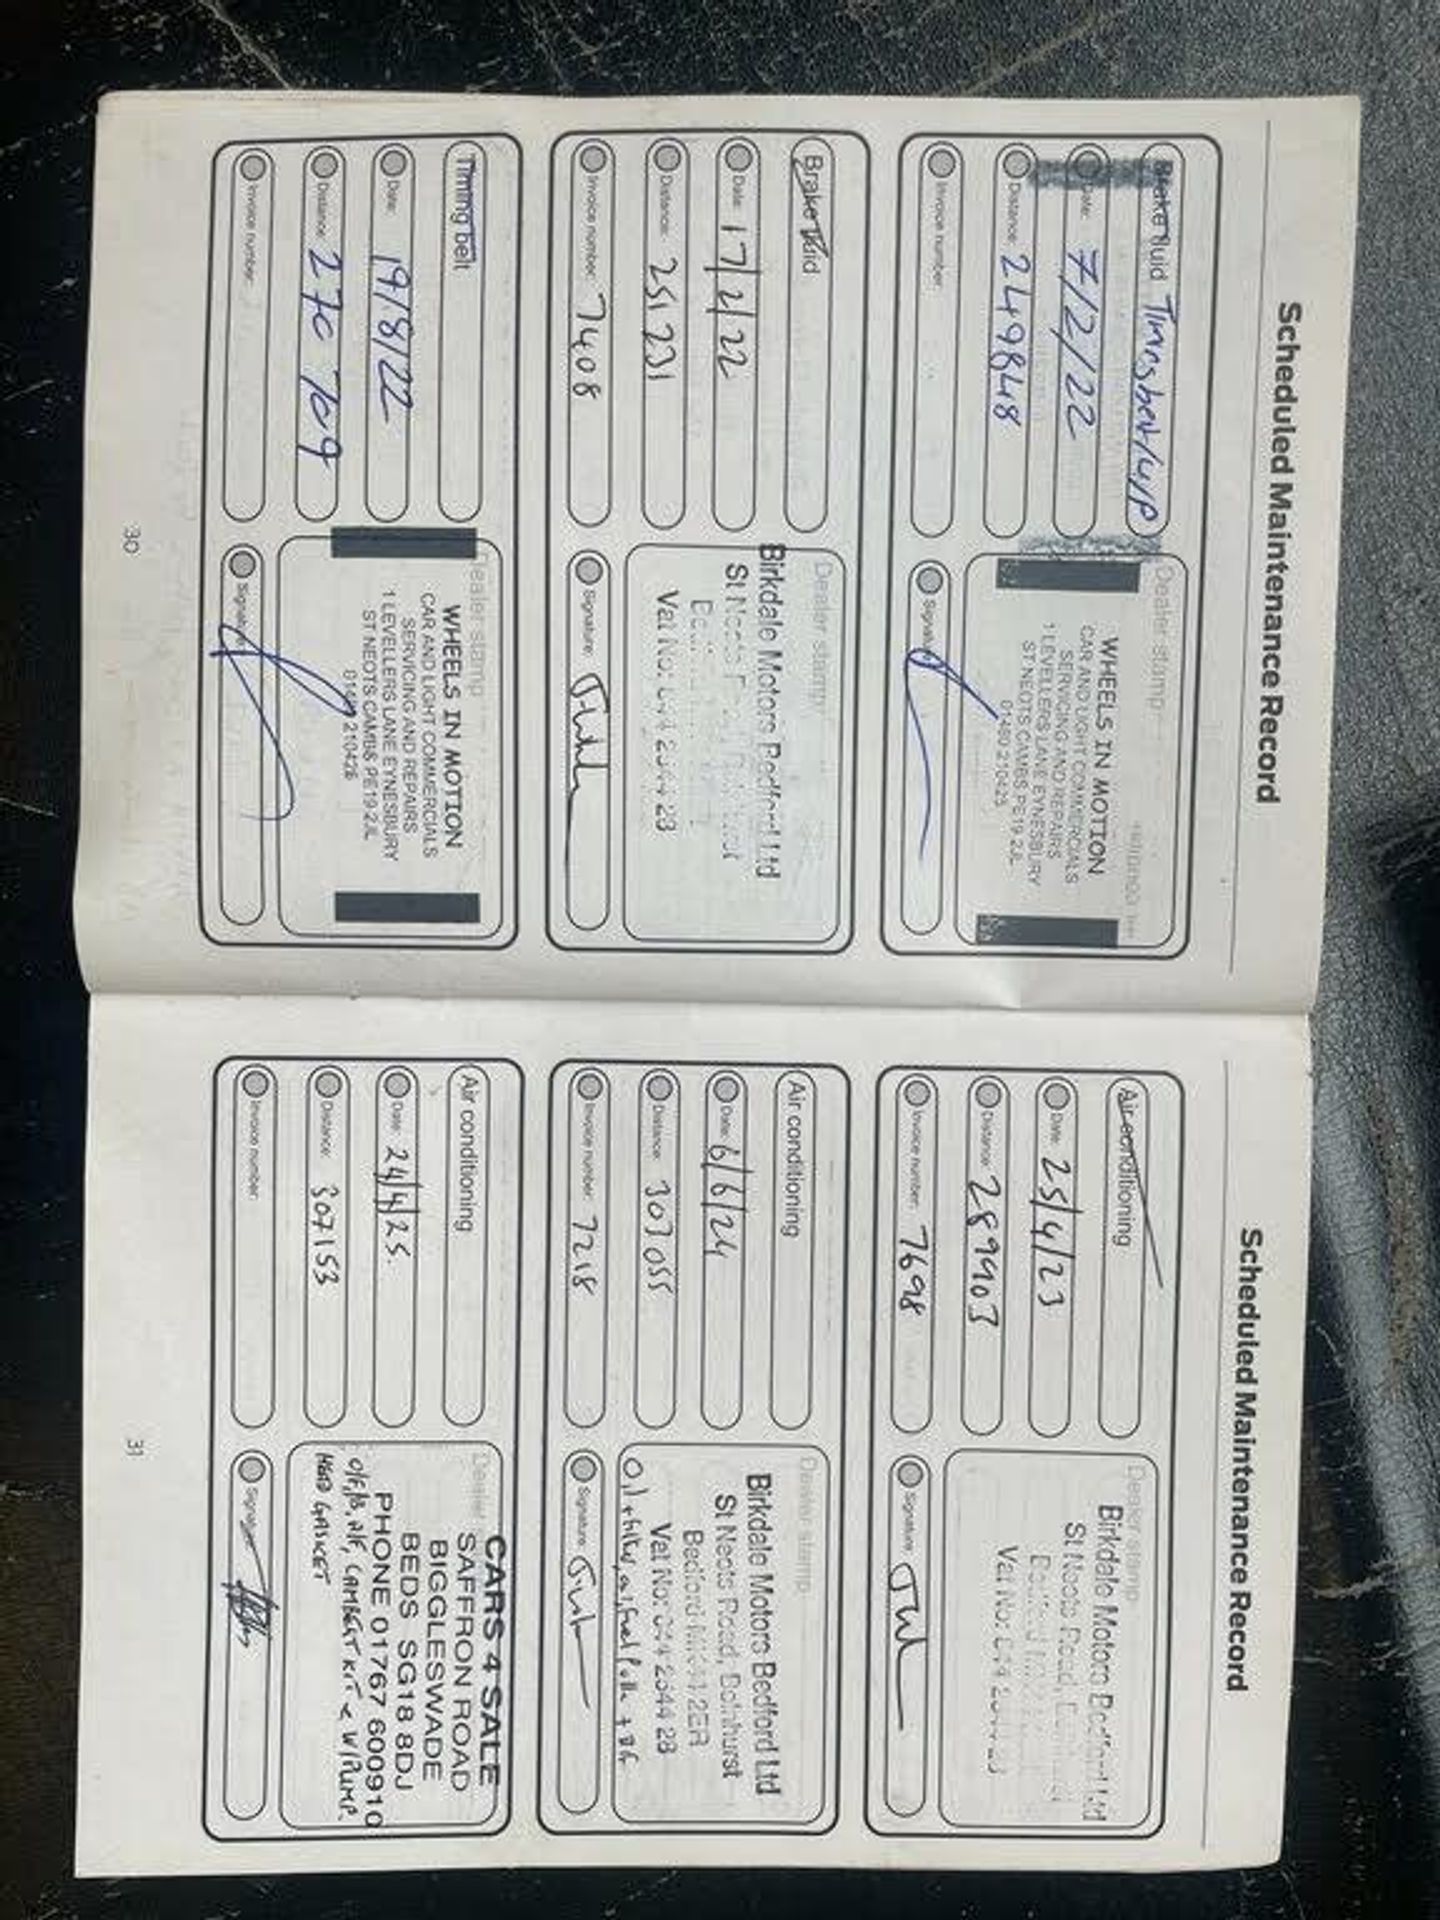 Scheduled Maintenance Record
Brake fluid Timing belt w/p
Date: 7/2/22
Distance: 249848
Invoice number:
Dealer stamp
WHEELS IN MOTION
CAR AND LIGHT COMMERCIALS
SERVICING AND REPAIRS
1 LEVELLERS LANE EYNESBURY
ST NEOTS CAMBS PE19 2JL
01480 210426
Signature:
Brake fluid
Date: 17/2/22
Distance: 251231
Invoice number: 7408
Dealer stamp
Birkdale Motors Bedford Ltd
St Neots Road, Bolnhurst
Vat No: 044 2344 28
Signature:
Timing belt
Date: 19/8/22
Distance: 270709
Invoice number:
Dealer stamp
WHEELS IN MOTION
CAR AND LIGHT COMMERCIALS
SERVICING AND REPAIRS
1 LEVELLERS LANE EYNESBURY
ST NEOTS CAMBS PE19 2JL
01480 210426
Signature:
30
Scheduled Maintenance Record
Air conditioning
Date: 25/4/23
Distance: 289903
Invoice number: 7698
Dealer stamp
Birkdale Motors Bedford Ltd
St Neots Road,
Signature:
Air conditioning
Date: 6/6/24
Distance: 303055
Invoice number: 7218
Dealer stamp
Birkdale Motors Bedford Ltd
St Neots Road, Bolnhurst
Bedford MK44 2ER
Vat No: 044 2344 28
Oil + filter, air, fuel Pollen +
Signature:
Air conditioning
Date: 24/4/25.
Distance: 307153
Invoice number:
Dealer
CARS 4 SALE
SAFFRON ROAD
BIGGLESWADE
BEDS SG18 8DJ
PHONE 01767 600910
A/F, CAMBELT KIT & W/PUMP.
HEAD GASKET
Signature:
31